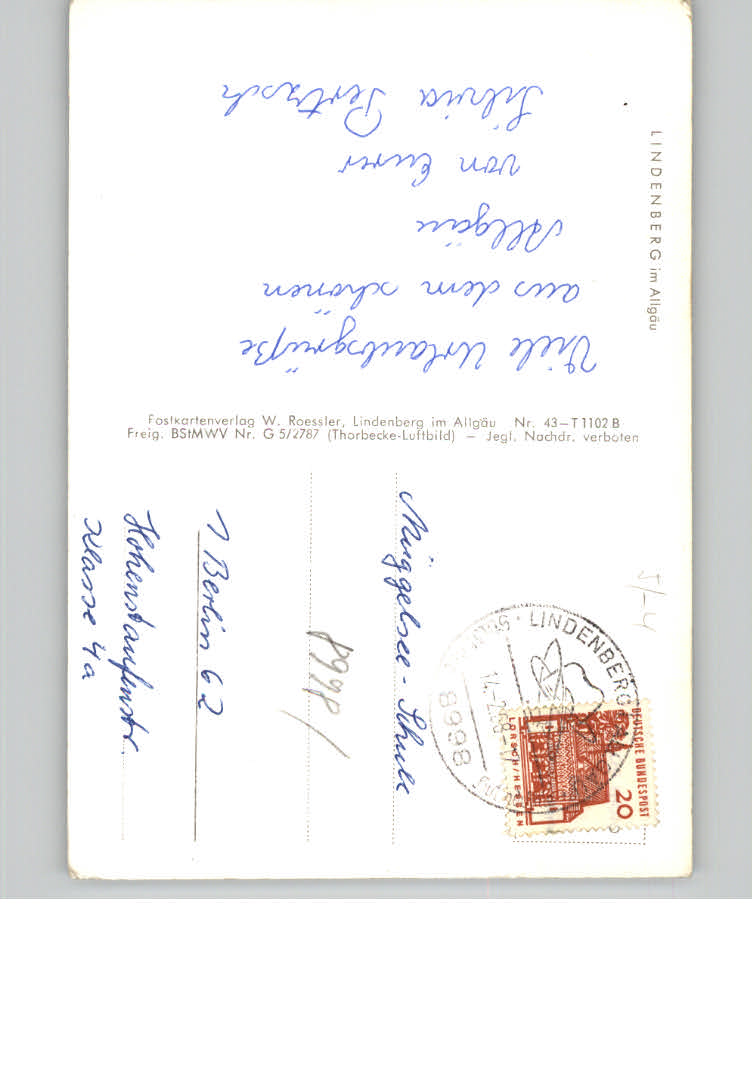 LINDENBERG im Allgäu
Viele Urlaubsgrüße
aus dem schönen
Allgäu
von Eurer
Silvia Pertzsch
Postkartenverlag W. Roessler, Lindenberg im Allgäu Nr. 43–T1102 B
Freig. BStMWV Nr. G 5/2787 (Thorbecke-Luftbild) – Jegl. Nachdr. verboten
5/-4
LINDENBERG
8998
DEUTSCHE BUNDESPOST
20
LORSCH/HESSEN
Müggelsee-Schule
8998/
1 Berlin 62
Hohenstaufenstr.
Klasse 4a